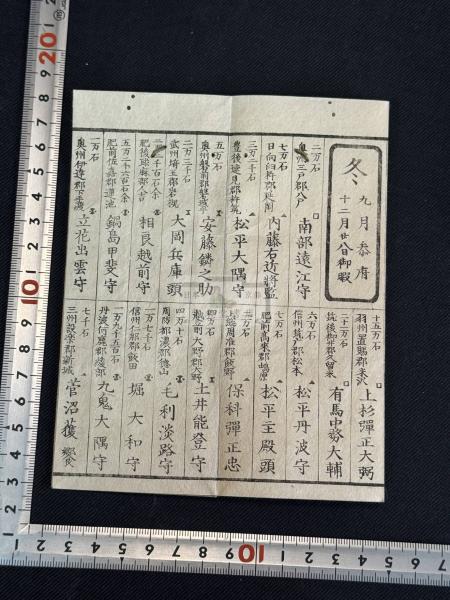 冬
九月参府
十二月廿八日御暇
二万石
奥州三戸郡八戸
南部遠江守
七万石
日向臼杵郡延岡
内藤右近将監
三万二千石
豊後速見郡杵築
松平大隅守
五万石
奥州磐前郡磐城平
安藤鏻之助
二万三千石
武州埼玉郡岩槻
大岡兵庫頭
二万二千百石余
肥後球麻郡人吉
相良越前守
五万二千六百石余
肥前佐嘉郡蓮池
鍋島甲斐守
一万石
奥州伊達郡下手渡
立花出雲守
十五万石
羽州置賜郡米沢
上杉弾正大弼
二十一万石
筑後御井郡久留米
有馬中務大輔
六万石
信州筑摩郡松本
松平丹波守
七万石
肥前高来郡島原
松平主殿頭
二万石
上総周准郡飯野
保科彈正忠
四万石
越前大野郡大野
土井能登守
四万十石
周防都濃郡徳山
毛利淡路守
一万七千石
信州伊那郡飯田
堀大和守
一万九千五百石
丹波何鹿郡綾部
九鬼大隅守
七千石
三州設楽郡新城
菅沼
10
20
1
2
3
4
5
6
7
8
9
10
1
2
3
4
5
6